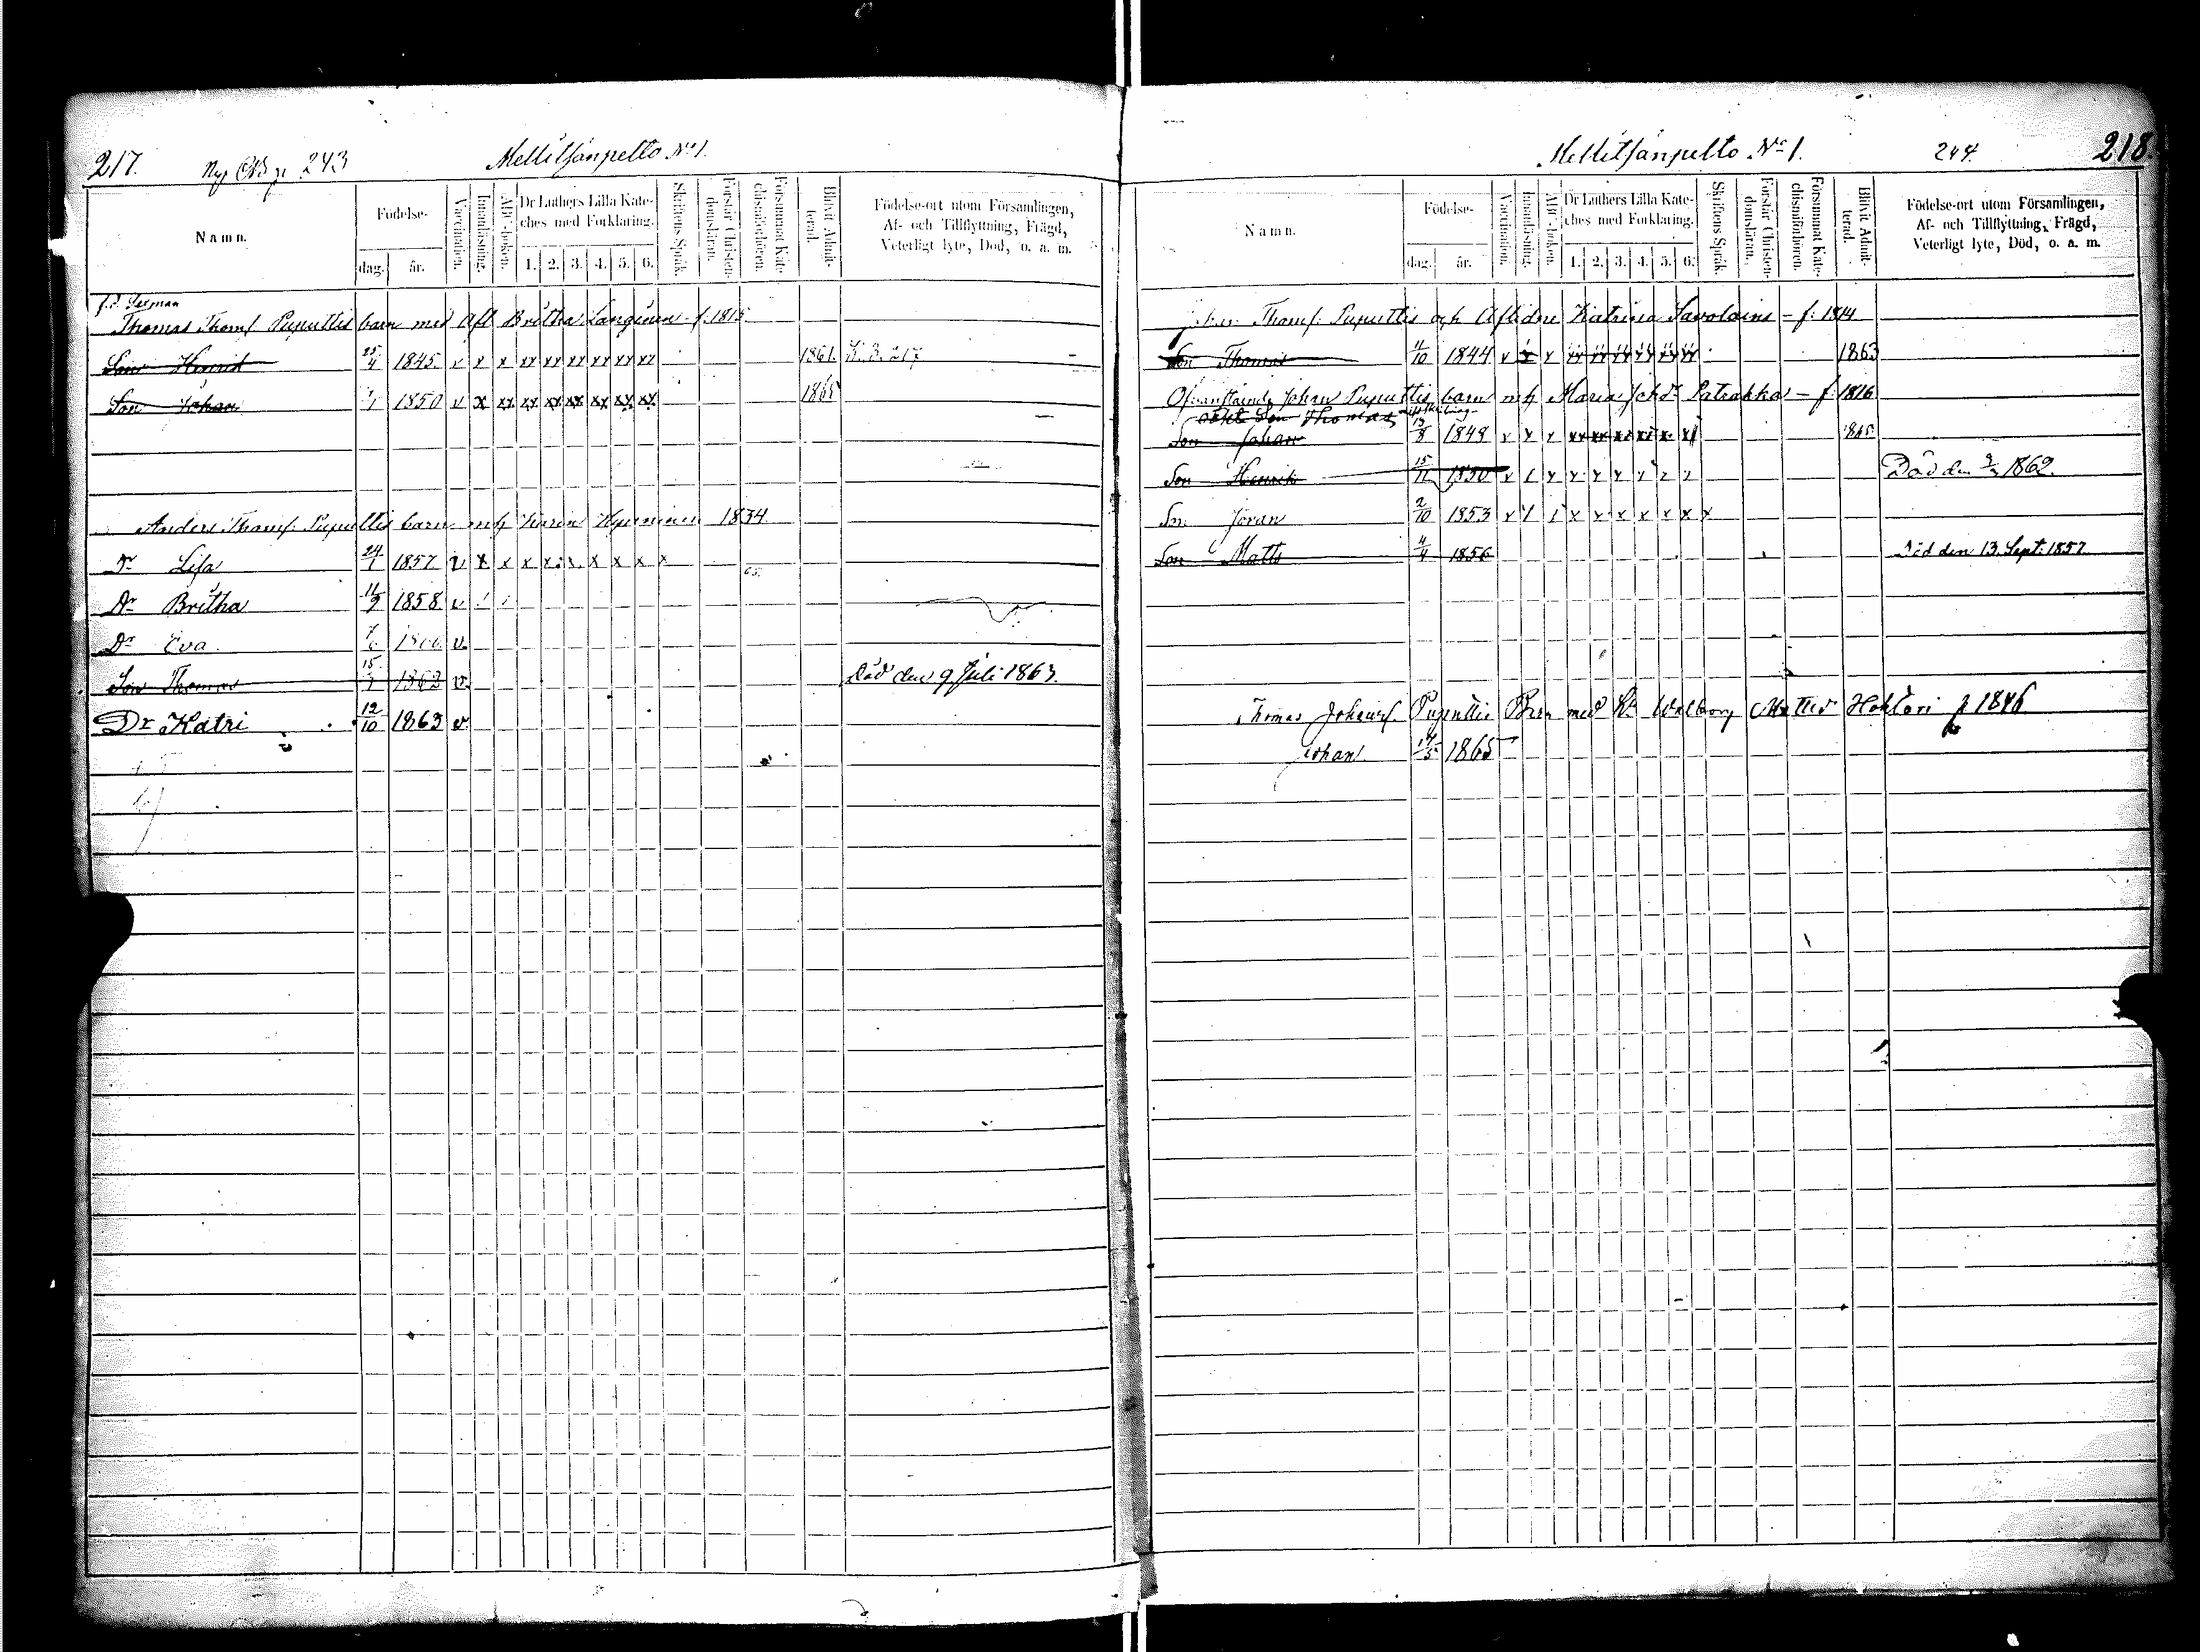 217. Ny CNB p. 243 Mellitsänpelto No 1.
Namn. Födelse- dag. år. Vaccination. Innanläsning. ABC-boken. Dr Luthers Lilla Kateches med Förklaring. 1. 2. 3. 4. 5. 6. Skriftens Språk. Förstår Christendomsläran. Försummat Katechismiförhören. Blifvit Admitterad. Födelse-ort utom Församlingen, Af- och Tillflyttning, Frägd, Veterligt lyte, Död, o. a. m.
f.d. Sexman
Thomas Thoms. Puputtis barn med Afl. Britha Länginen f. 1815
Son Henrik 25/4 1845. v x x xx xx xx xx xx xx 1861. K.B. 217
Son Johan 1850 v x xx xx xx xx xx xx xx 1865
Anders Thoms. Puputtis barn mh Karin Hyninen 1834
Dr Lisa 24/1 1857 v x x x x x x x x
Dr Britha 11/9 1858. v
Dr Eva v.
Son Thomas 15 1862 v. Död den 9 Juli 1863.
Dr Katri 12/10 1863 v.
Mellitsänpelto No 1. 244. 218.
Namn. Födelse- dag. år. Vaccination. Innanläsning. ABC-boken. Dr Luthers Lilla Kateches med Förklaring. 1. 2. 3. 4. 5. 6. Skriftens Språk. Förstår Christendomsläran. Försummat Katechismiförhören. Blifvit Admitterad. Födelse-ort utom Församlingen, Af- och Tillflyttning, Frägd, Veterligt lyte, Död, o. a. m.
Johan Thoms. Puputtis och Aflidne Katrina Savolains – f. 1814
Son Thomas 4/10 1844 v x x xx xx xx xx xx xx 1863
Ofvanstående Johan Puputtis barn mh Maria Johdr Patrakka – f. 1816
Son Thomas
Son Johan 13/8 1849 v x x xx xx xx xx x. x 1865
Son Henrik 15/11 1850 v x x x x x x Död den 1862.
Son Jöran 2/10 1853 v x x x x x x x
Son Matts 4/4 1856 Död den 13. Sept. 1857
Thomas Johans. Puputtis Barn med H. Walborg Mattsd. Hokkari f. 1846
Johan 1865